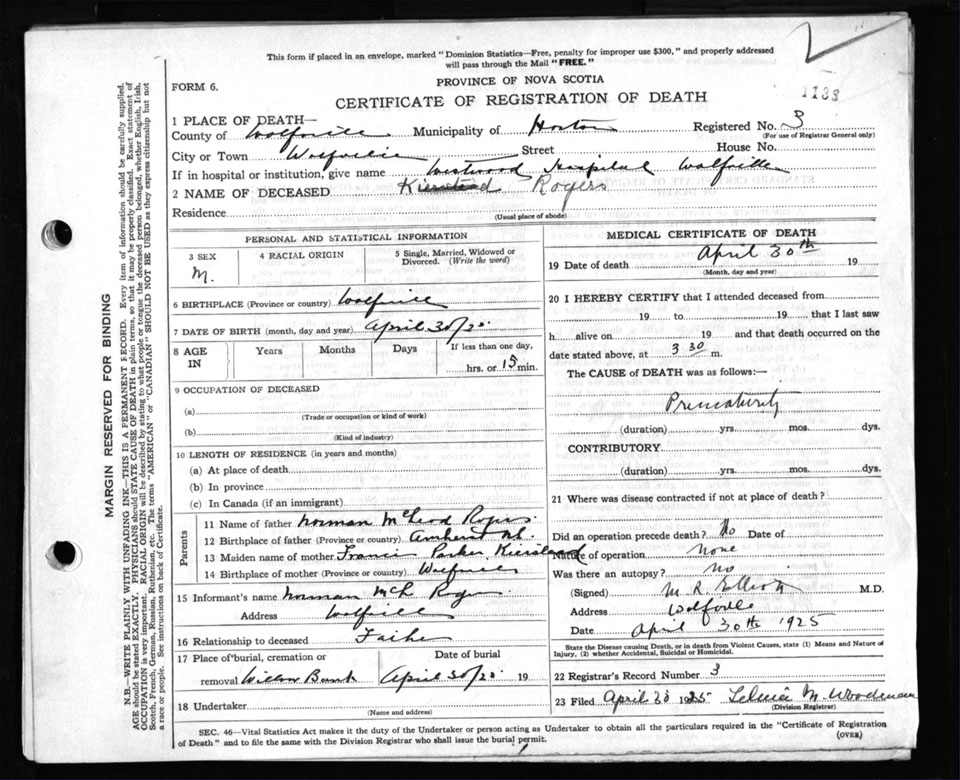 1133
This form if placed in an envelope, marked "Dominion Statistics—Free, penalty for improper use $300," and properly addressed
will pass through the Mail "FREE."
PROVINCE OF NOVA SCOTIA
FORM 6.
CERTIFICATE OF REGISTRATION OF DEATH
1 PLACE OF DEATH—
County of Wolfville Municipality of Horton Registered No. 3
(For use of Registrar General only)
City or Town Wolfville Street House No.
If in hospital or institution, give name Westwood Hospital Wolfville
2 NAME OF DECEASED Kierstead Rogers
Residence
(Usual place of abode)
PERSONAL AND STATISTICAL INFORMATION
3 SEX 4 RACIAL ORIGIN 5 Single, Married, Widowed or
Divorced. (Write the word)
M.
6 BIRTHPLACE (Province or country) Wolfville
7 DATE OF BIRTH (month, day and year) April 30/25
8 AGE IN Years Months Days If less than one day,
hrs. or 15 min.
9 OCCUPATION OF DECEASED
(a)
(Trade or occupation or kind of work)
(b)
(Kind of industry)
10 LENGTH OF RESIDENCE (in years and months)
(a) At place of death
(b) In province
(c) In Canada (if an immigrant)
Parents
11 Name of father Norman McLeod Rogers
12 Birthplace of father (Province or country) Amherst N.S.
13 Maiden name of mother Francis Parker Kierstead
14 Birthplace of mother (Province or country) Wolfville
15 Informant's name Norman McL Rogers
Address Wolfville
16 Relationship to deceased Father
17 Place of burial, cremation or Date of burial
removal Willow Bank April 30/25 19
18 Undertaker
(Name and address)
MEDICAL CERTIFICATE OF DEATH
19 Date of death April 30th 19
(Month, day and year)
20 I HEREBY CERTIFY that I attended deceased from
19 to 19 that I last saw
h alive on 19 and that death occurred on
date stated above, at 3 30 m.
The CAUSE of DEATH was as follows:—
Prematurity
(duration) yrs. mos. dys.
CONTRIBUTORY
(duration) yrs. mos. dys.
21 Where was disease contracted if not at place of death?
Did an operation precede death? No Date of
Nature of operation None
Was there an autopsy? no
(Signed) M. R. Elliott M.D.
Address Wolfville
Date April 30th 1925
State the Disease causing Death, or in death from Violent Causes, state (1) Means and Nature of
Injury, (2) whether Accidental, Suicidal or Homicidal.
22 Registrar's Record Number 3
23 Filed April 30 1925 M. Woodman
(Division Registrar)
SEC. 46—Vital Statistics Act makes it the duty of the Undertaker or person acting as Undertaker to obtain all the particulars required in the "Certificate of Registration
of Death" and to file the same with the Division Registrar who shall issue the burial permit.
(OVER)
MARGIN RESERVED FOR BINDING
N.B.—WRITE PLAINLY WITH UNFADING INK—THIS IS A PERMANENT RECORD. Every item of information should be carefully supplied.
AGE should be stated EXACTLY. PHYSICIANS should STATE CAUSE OF DEATH in plain terms, so that it may be properly classified. Exact statement of
OCCUPATION is very important. RACIAL ORIGIN will be described by stating to what people or tongue the deceased person belonged, whether English, Irish,
Scotch, French, German, Russian, Ruthenian, etc. The terms "AMERICAN" or "CANADIAN" SHOULD NOT BE USED as they express citizenship but not
a race or people. See instructions on back of Certificate.